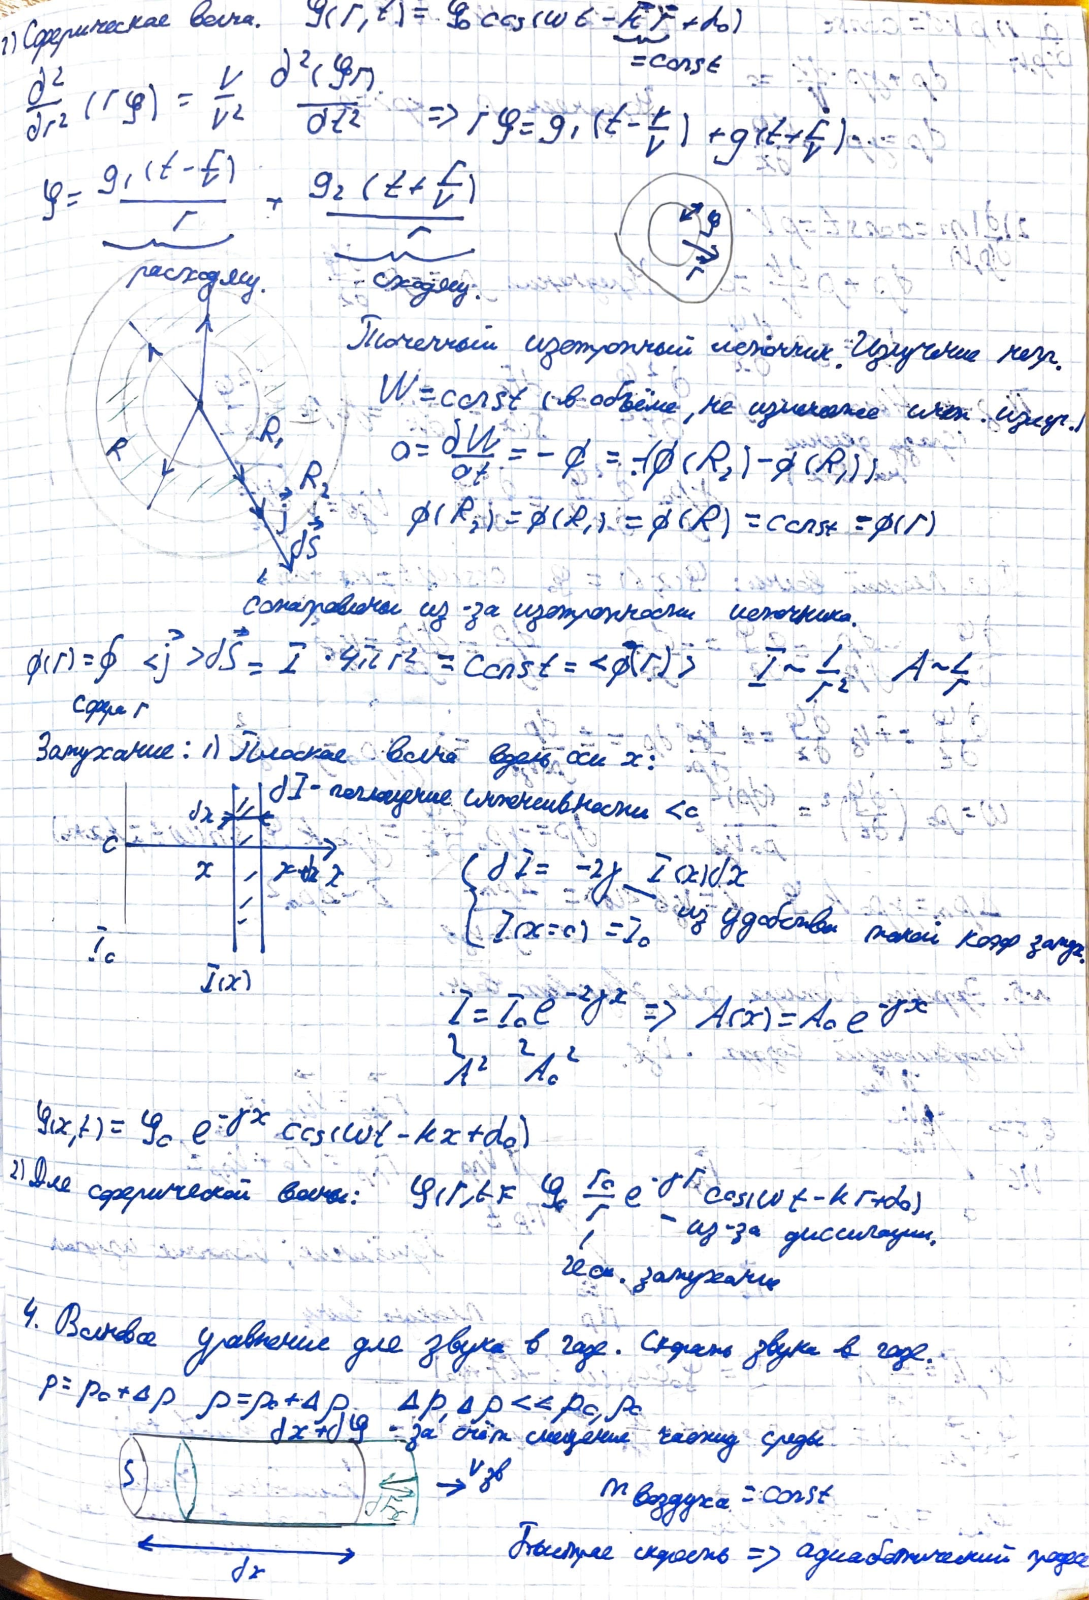 2) Сферическая волна. φ(r,t) = φ₀ cos(ωt - k⃗r⃗ + α₀)
= const
d²/dr² (rφ) = 1/v² d²(φr)/dt² => rφ = g₁(t - r/v) + g(t + r/v)
φ = g₁(t - r/v)/r + g₂(t + r/v)/r
расходящ. сходящ.
φ
r
Точечный изотропный источник. Излучение непр.
W = const (в объёме, не изменяе
R
R₁
R₂
j⃗
dS⃗
0 = dW/dt = -ϕ = -(ϕ(R₂) - ϕ(R₁));
ϕ(R₂) = ϕ(R₁) = ϕ(R) = const = ϕ(r)
Сонаправлены из-за изотропности источника.
ϕ(r) = ∮ <j⃗>dS⃗ = I · 4πr² = const = <ϕ(r)> I ~ 1/r² A ~ 1/r
сфера r
Затухание: 1) Плоская волна вдоль оси x:
dI - поглощение интенсивности < 0
dx
0
x
x+dx
x
I₀
I(x)
{ dI = -2γ I(x)dx
I(x=0) = I₀
из удобства такой коэф затух.
I = I₀e^-2γx => A(x) = A₀ e^-γx
A² A₀²
φ(x,t) = φ₀ e^-γx cos(ωt - kx + α₀)
2) Для сферической волны: φ(r,t) = φ₀ r₀/r e^-γr cos(ωt - kr + α₀)
- из-за диссипации.
геом. затухание
4. Волновое уравнение для звука в газе. Скорость звука в газе.
p = p₀ + Δp ρ = ρ₀ + Δρ Δp, Δρ << p₀, ρ₀
dx + dφ - за счёт смещения частиц среды
S
v зв
dx
m воздуха = const
Быстрая скорость => адиабатический